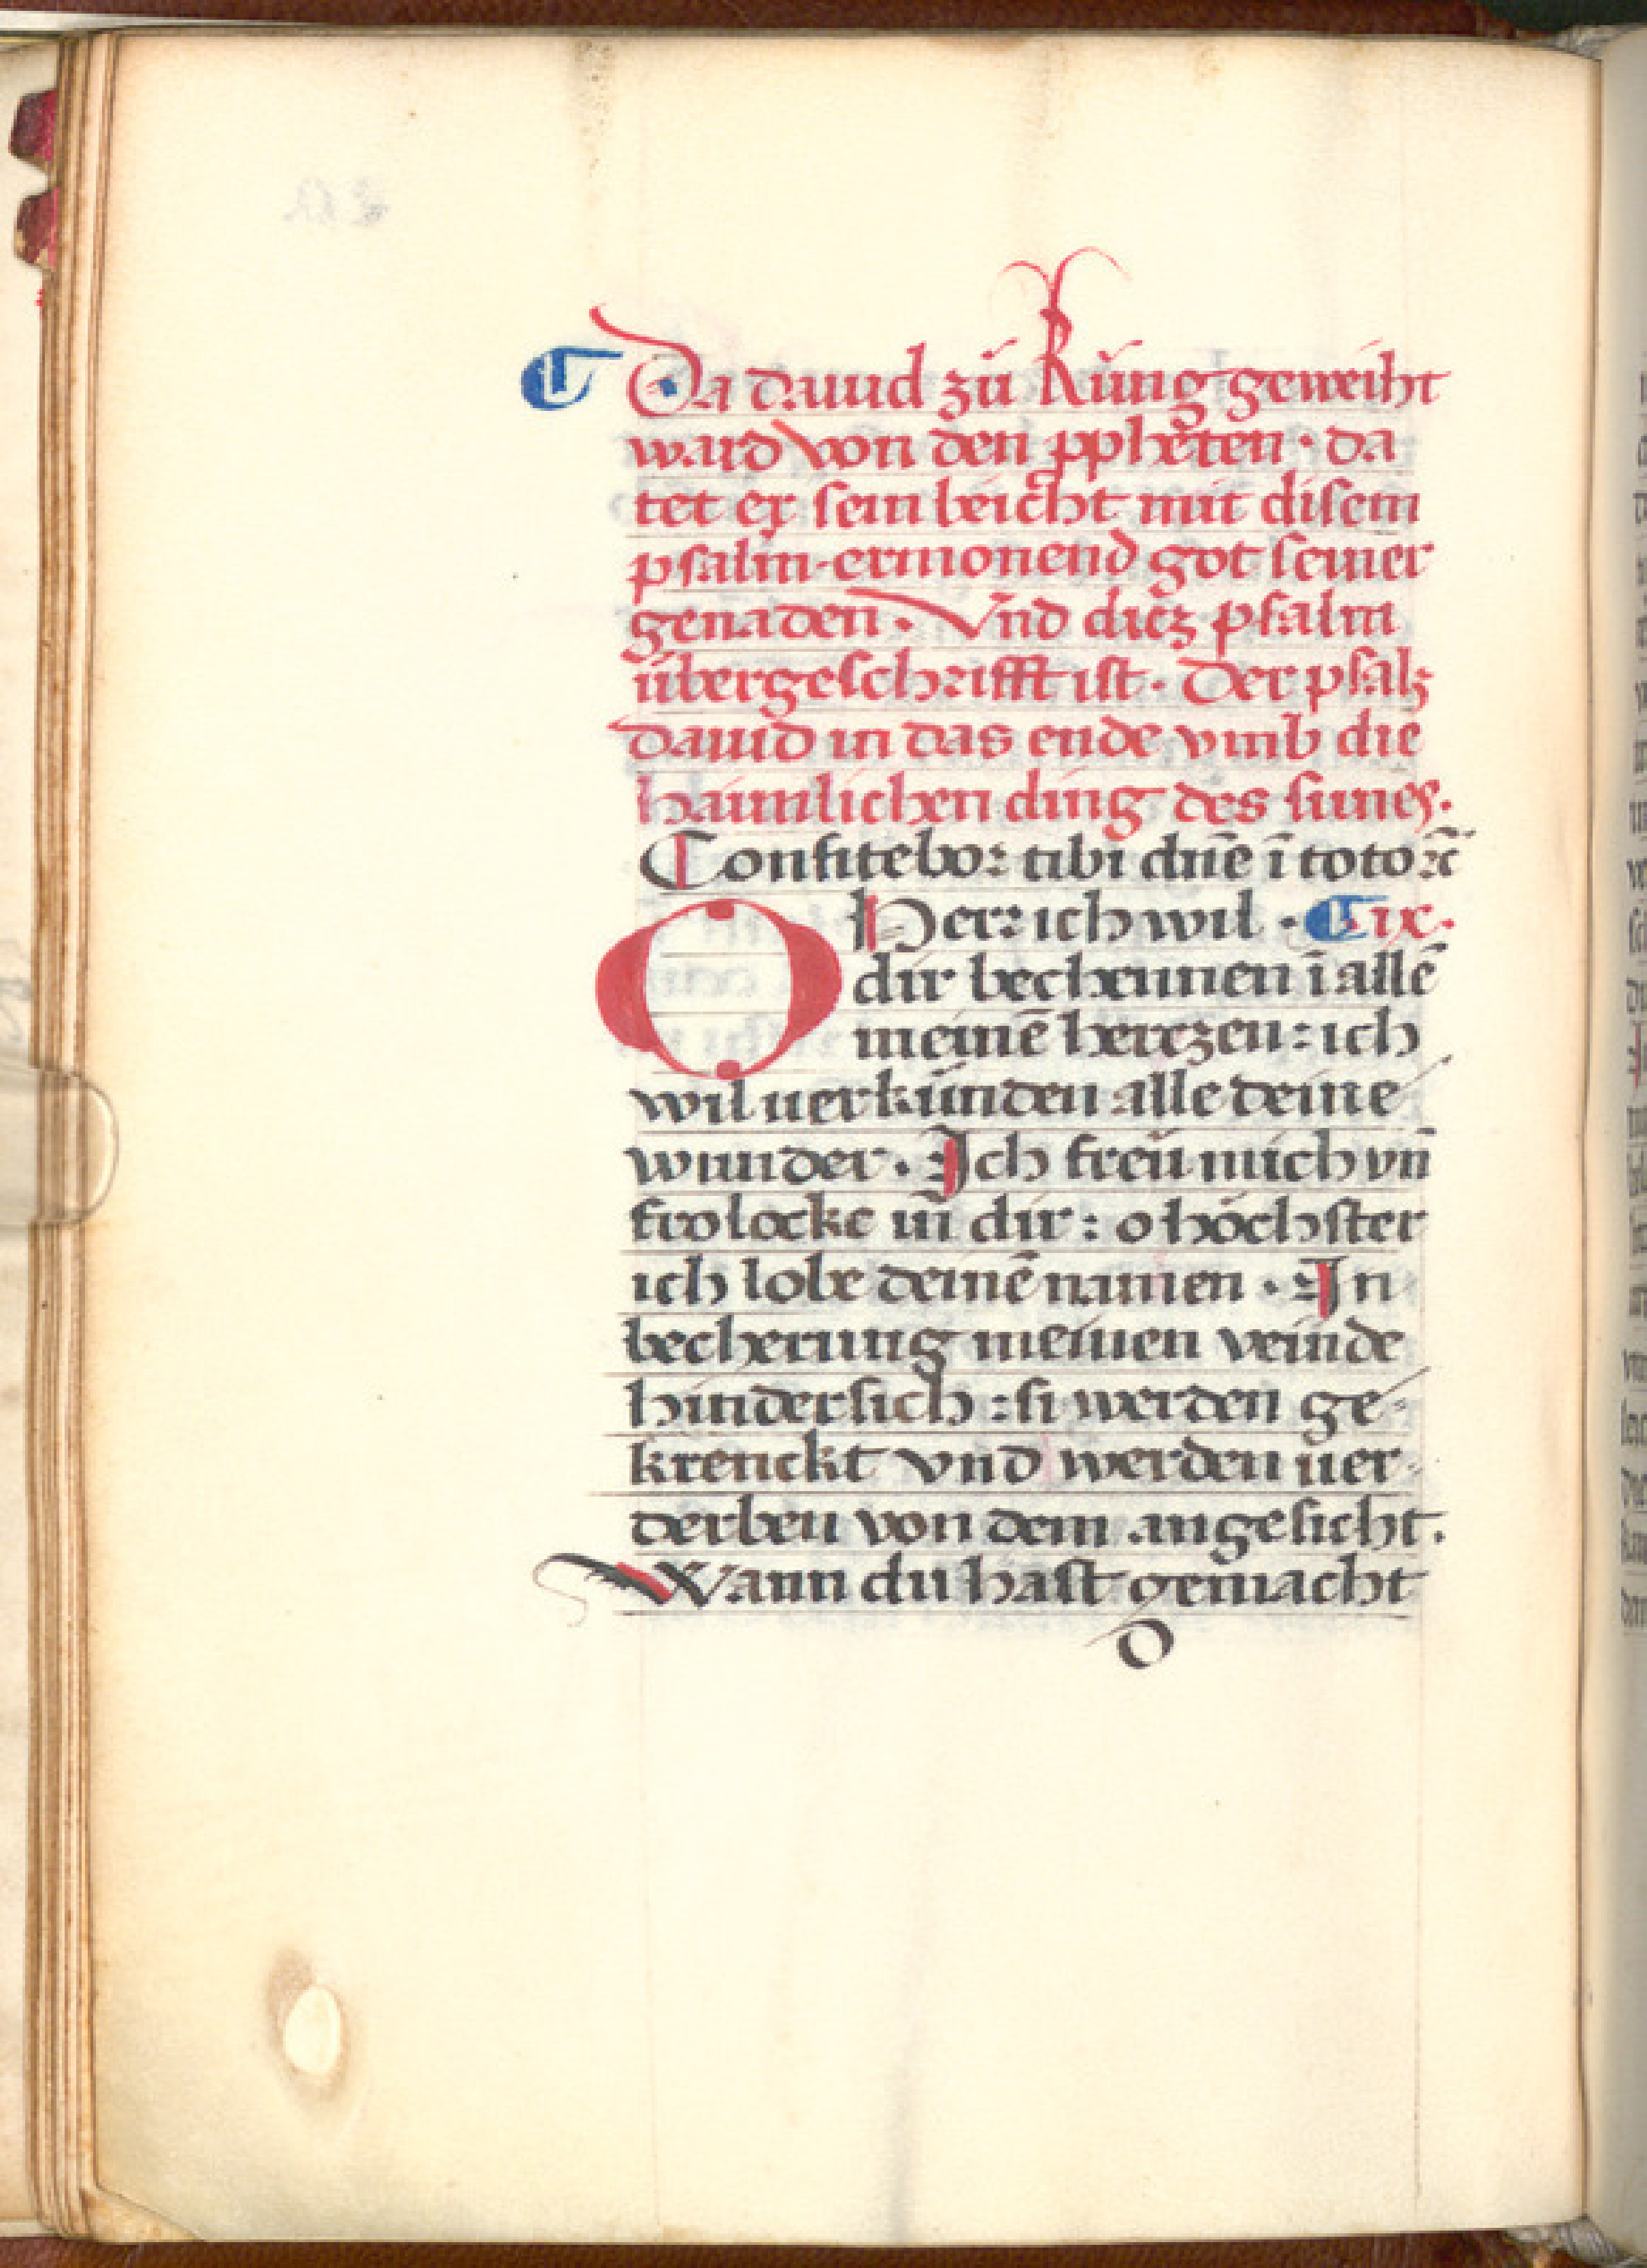 Da dauid zů Kűng geweiht
ward von den ppheten · da
tet er sein beicht mit disem
psalm · ermonend got seiner
genaden · Vnd dicz psalm
übergeschrifft ist · Der psalʒ
dauid in das ende vmb die
haimlichen ding des sunes ·
Confitebor tibi dn̄e ī toto ꝛc̄
O Her: ich wil · ix ·
dir bechennen ī allē
meinē herczen : ich
wil uerkünden alle deine
wunder · Ich freü mich vn̄
frolocke in dir : o höchster
ich lobe deinē namen · In
becherung meinen veinde
hindersich : si werden ge-
krenckt vnd werden uer-
derben von dem angesicht ·
Wann du hast gemacht